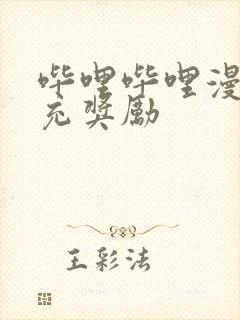 哔哩哔哩漫
充奖励
王彩法